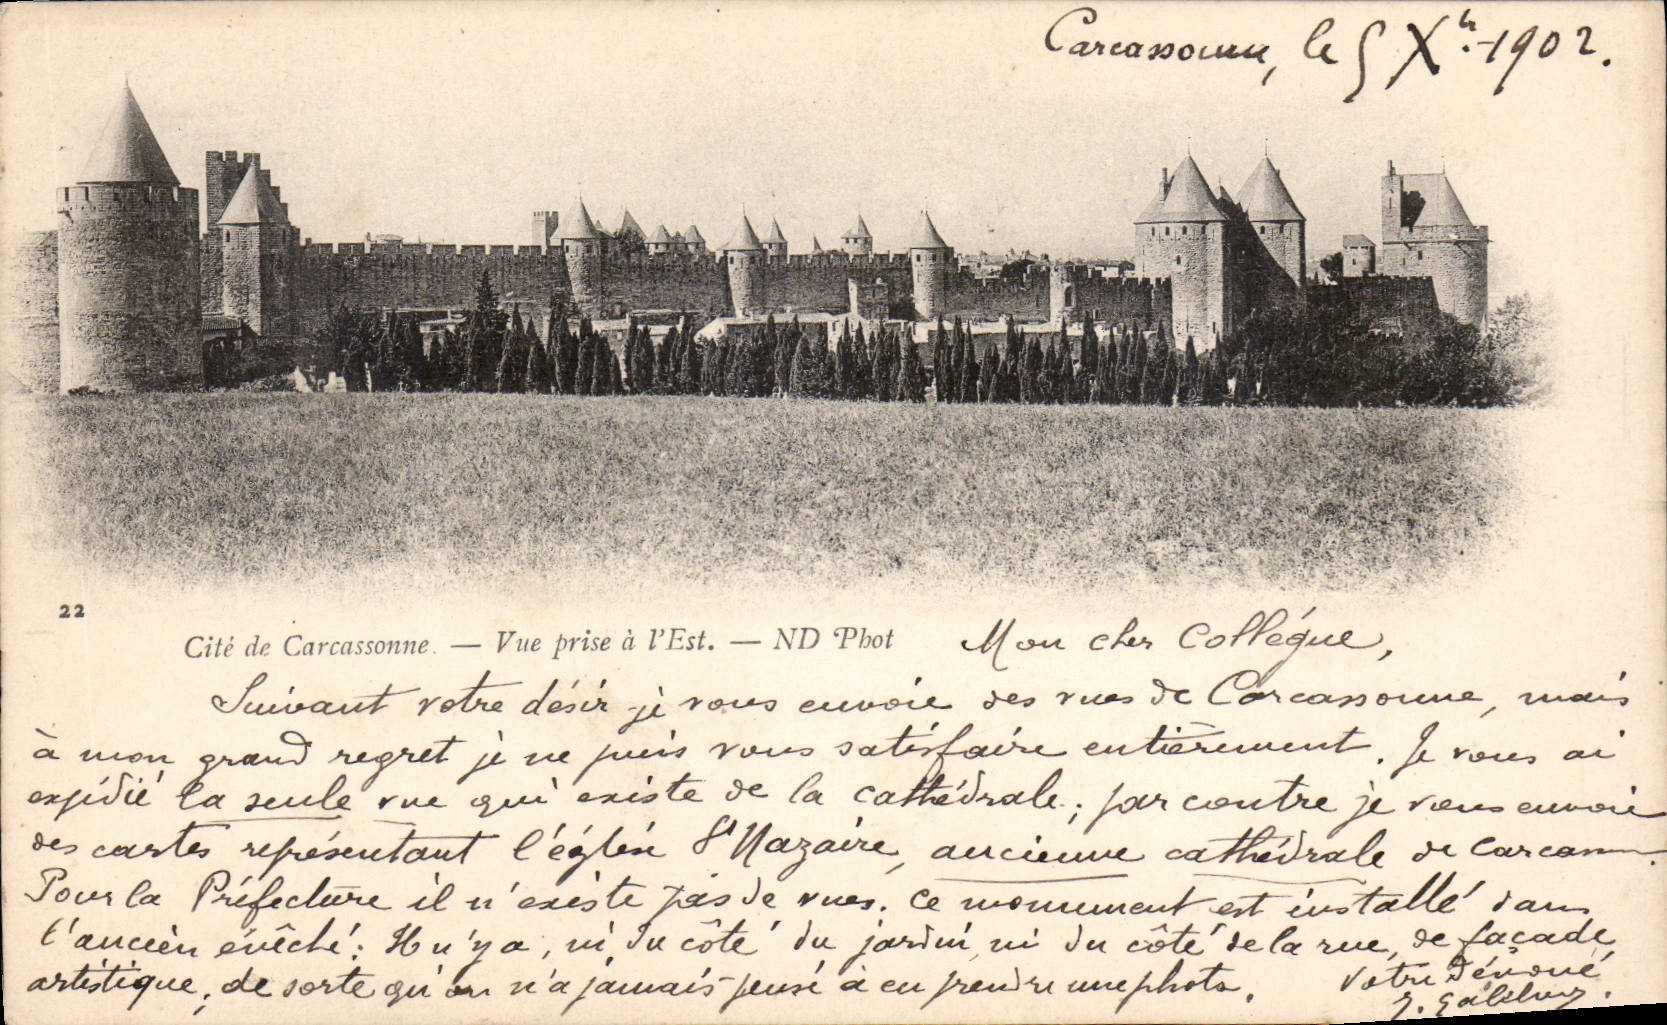 Carcassonne, le 5 Xbr. 1902.
22
Cité de Carcassonne. — Vue prise à l'Est. — ND Phot
Mon cher Collégue,
Suivant votre désir je vous envoie des vues de Carcassonne, mais
à mon grand regret je ne puis vous satisfaire entièrement. Je vous ai
expédié la seule vue qui existe de la cathédrale; par contre je vous envoie
des cartes représentant l'église St Nazaire, ancienne cathédrale de Carcassonne.
Pour la Préfecture il n'existe pas de vues. Ce monument est installé dans
l'ancien évêché: Il n'y a, ni du côté du jardin, ni du côté de la rue, de façade
artistique, de sorte qu'on n'a jamais pensé à en prendre une photo.
Votre dévoué,